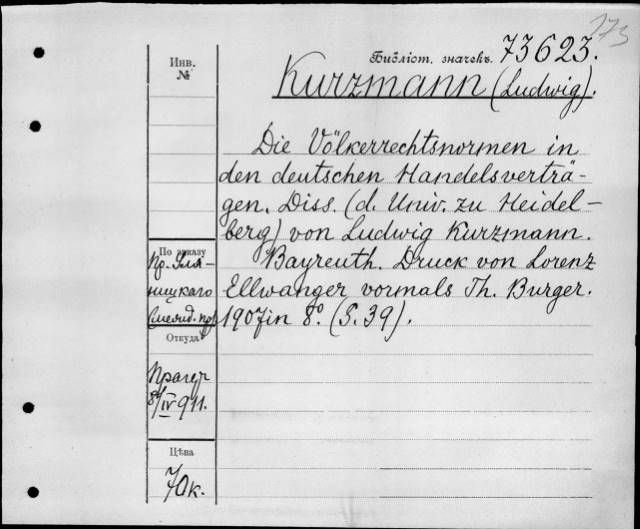 173
Библіот. значекъ. 73623.
Инв.
№
Kurzmann (Ludwig).
Die Völkerrechtsnormen in
den deutschen Handelsverträ-
gen. Diss. (d. Univ. zu Heidel-
berg) von Ludwig Kurzmann.
Bayreuth. Druck von Lorenz
Ellwanger vormals Th. Burger.
1907 in 8º. (S. 39).
По заказу
Пр. Уля-
ницкаго
Откуда
Прагер
8/IV 911.
Цѣна
70к.